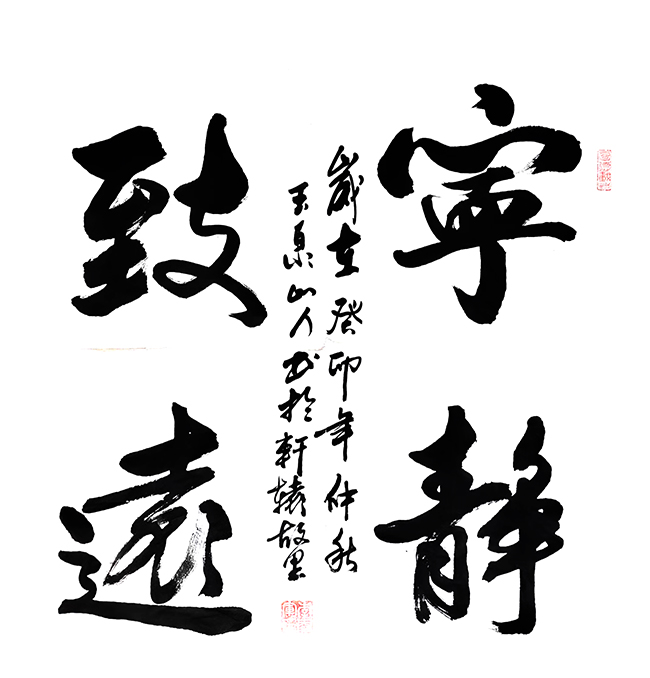 寧靜
致遠
歲在癸卯年仲秋
玉泉山人书於軒辕故里